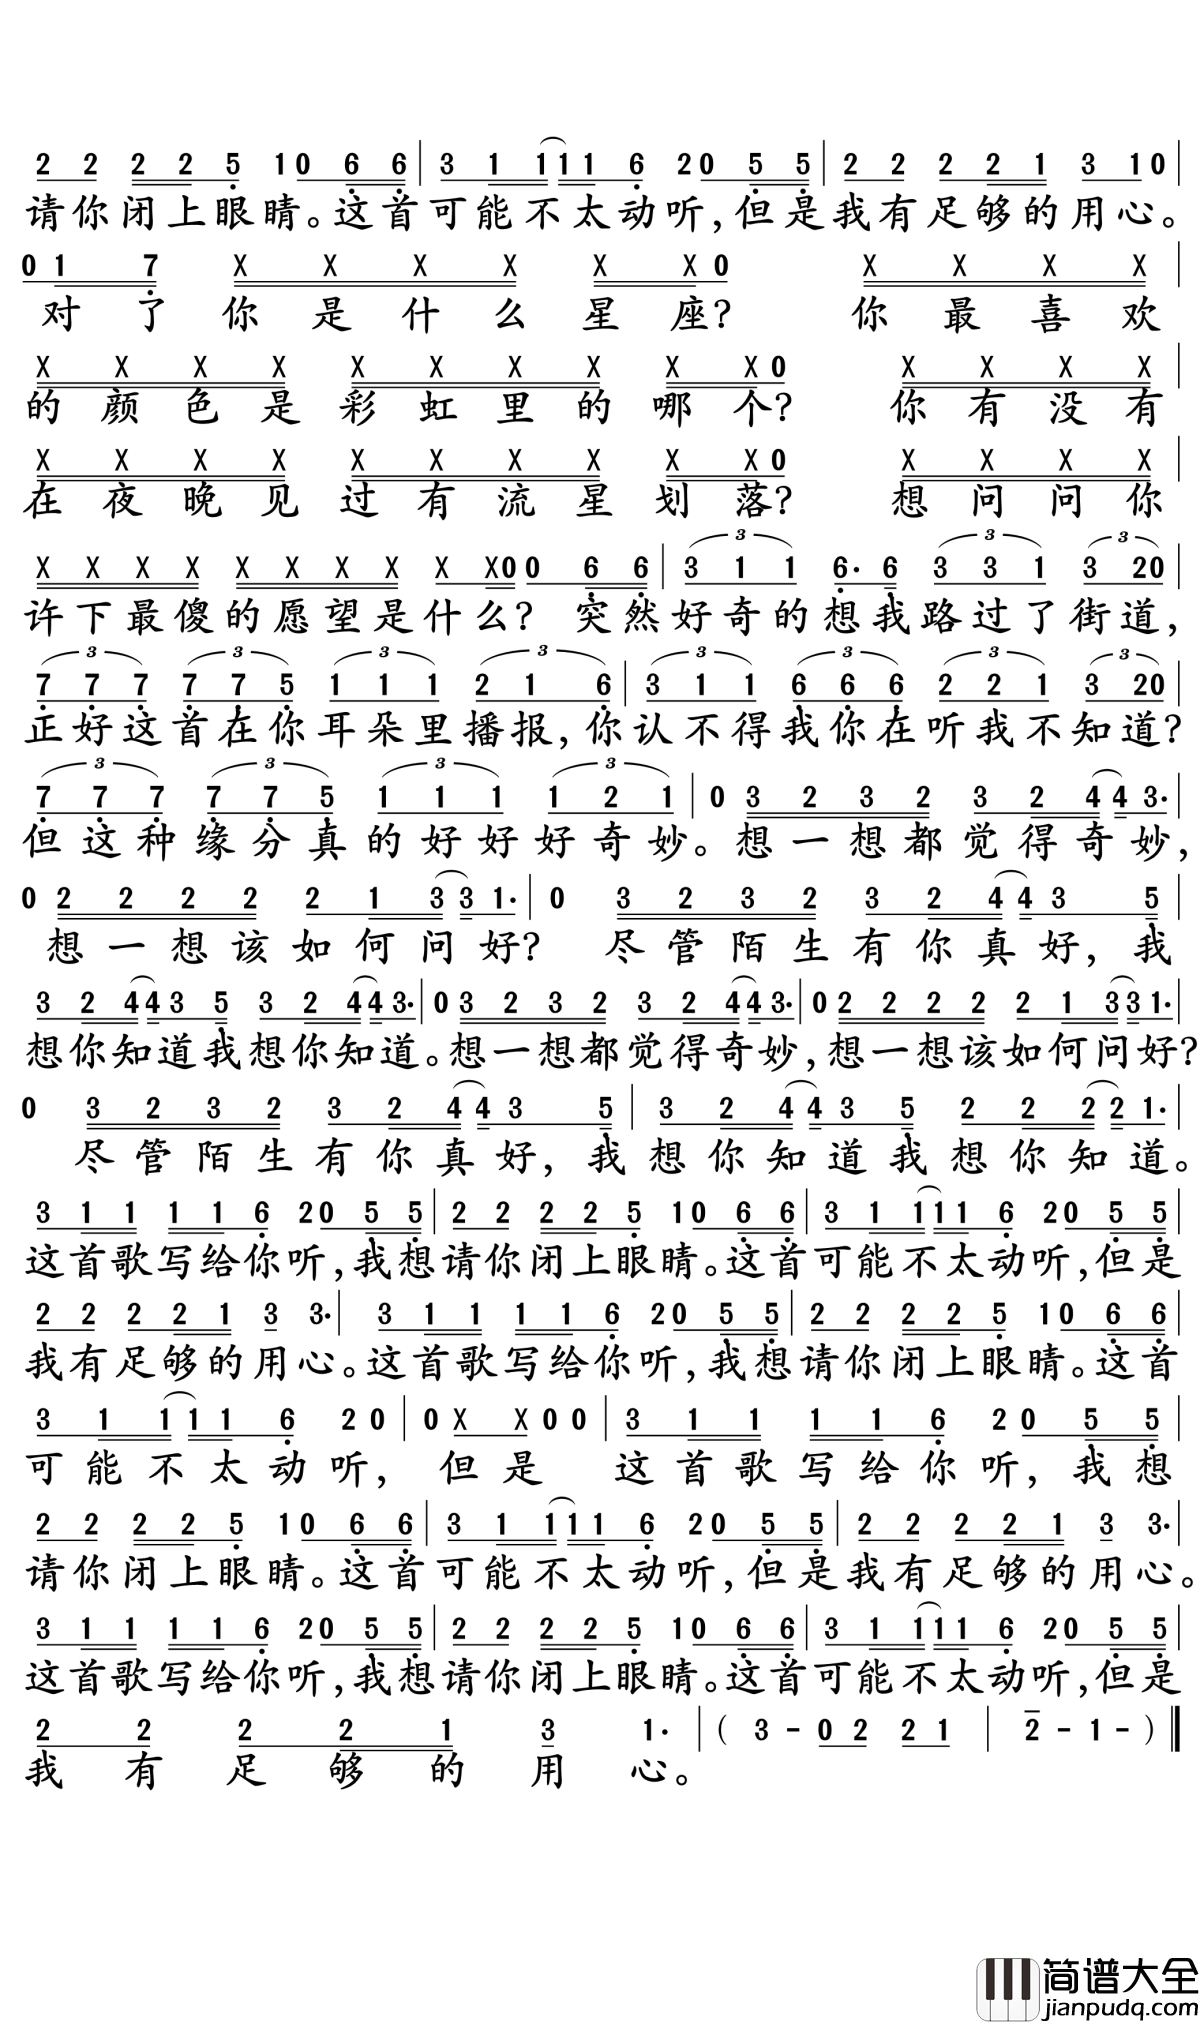 2 2 2 2 5 1 0 6 6 | 3 1 1 1 1 6 2 0 5 5 | 2 2 2 2 1 3 1 0 |
请你闭上眼睛。这首可能不太动听,但是我有足够的用心。
0 1 7 X X X X X X 0 X X X X |
对了你是什么星座? 你最喜欢
X X X X X X X X X X 0 X X X X |
的颜色是彩虹里的哪个? 你有没有
X X X X X X X X X X 0 X X X X |
在夜晚见过有流星划落? 想问问你
X X X X X X X X X X 0 0 6 6 | 3 1 1 6· 6 3 3 1 3 2 0 |
许下最傻的愿望是什么? 突然好奇的想我路过了街道,
7 7 7 7 7 5 1 1 1 2 1 6 | 3 1 1 6 6 6 2 2 1 3 2 0 |
正好这首在你耳朵里播报,你认不得我你在听我不知道?
7 7 7 7 7 5 1 1 1 1 2 1 | 0 3 2 3 2 3 2 4 4 3· |
但这种缘分真的好好好奇妙。想一想都觉得奇妙,
0 2 2 2 2 2 1 3 3 1· | 0 3 2 3 2 3 2 4 4 3 5 |
想一想该如何问好? 尽管陌生有你真好,我
3 2 4 4 3 5 3 2 4 4 3· | 0 3 2 3 2 3 2 4 4 3· | 0 2 2 2 2 2 1 3 3 1· |
想你知道我想你知道。想一想都觉得奇妙,想一想该如何问好?
0 3 2 3 2 3 2 4 4 3 5 | 3 2 4 4 3 5 2 2 2 2 1· |
尽管陌生有你真好,我想你知道我想你知道。
3 1 1 1 1 6 2 0 5 5 | 2 2 2 2 5 1 0 6 6 | 3 1 1 1 1 6 2 0 5 5 |
这首歌写给你听,我想请你闭上眼睛。这首可能不太动听,但是
2 2 2 2 1 3 3· | 3 1 1 1 1 6 2 0 5 5 | 2 2 2 2 5 1 0 6 6 |
我有足够的用心。这首歌写给你听,我想请你闭上眼睛。这首
3 1 1 1 1 6 2 0 | 0 X X 0 0 | 3 1 1 1 1 6 2 0 5 5 |
可能不太动听,但是 这首歌写给你听,我想
2 2 2 2 5 1 0 6 6 | 3 1 1 1 1 6 2 0 5 5 | 2 2 2 2 1 3 3· |
请你闭上眼睛。这首可能不太动听,但是我有足够的用心。
3 1 1 1 1 6 2 0 5 5 | 2 2 2 2 5 1 0 6 6 | 3 1 1 1 1 6 2 0 5 5 |
这首歌写给你听,我想请你闭上眼睛。这首可能不太动听,但是
2 2 2 2 1 3 1· | ( 3 - 0 2 2 1 | 2 - 1 - ) ‖
我有足够的用心。
简谱大全
jianpudq.com